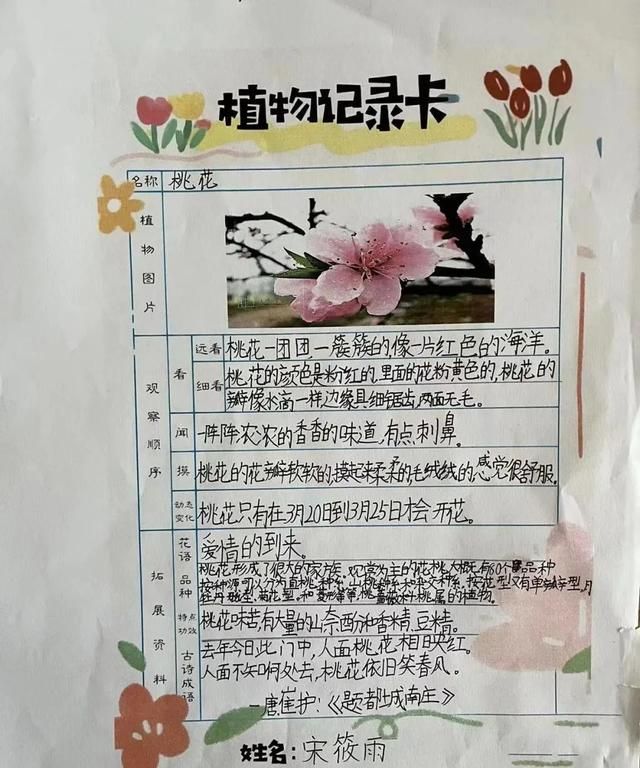 植物记录卡
名称 桃花
植物图片
观察顺序
看
远看 桃花一团团,一簇簇的,像一片红色的海洋。
细看 桃花的颜色是粉红的,里面的花粉黄色的,桃花的
瓣像水滴一样边缘具细锯齿,两面无毛。
闻 一阵阵浓浓的香香的味道,有点刺鼻。
摸 桃花的花瓣软软的,摸起来柔柔的,毛绒绒的感觉很舒服。
动态变化 桃花只有在3月20日到3月25日才会开花。
拓展资料
花语 爱情的到来。
品种 桃花形成了很大的家族,观赏为主的花桃大概有60个品种
按种源可以分为直桃种系,山桃种系和杂交种系,按花型又有单瓣型,月
牡丹型,菊花型。和
桃属的植物。
特点功效 桃花味苦,有大量的山奈酚和香精,豆精。
古诗成语 去年今日此门中,人面桃花相映红。
人面不知何处去,桃花依旧笑春风。
—唐崔护:《题都城南庄》
姓名:宋筱雨